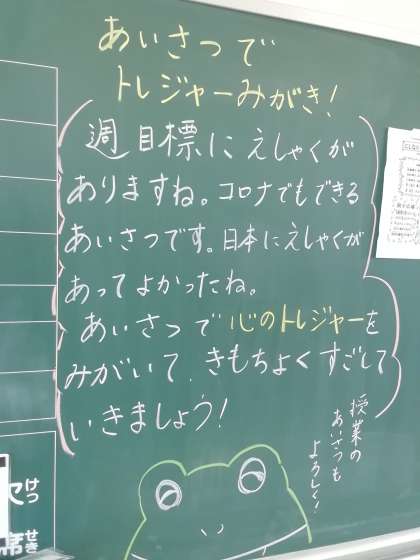 あいさつで
トレジャーみがき!
週目標にえしゃくが
ありますね。コロナでもできる
あいさつです。日本にえしゃくが
あってよかったね。
あいさつで心のトレジャーを
みがいて、きもちよくすごして
いきましょう!
授業の
あいさつも
よろしく!
欠けつ
席せき